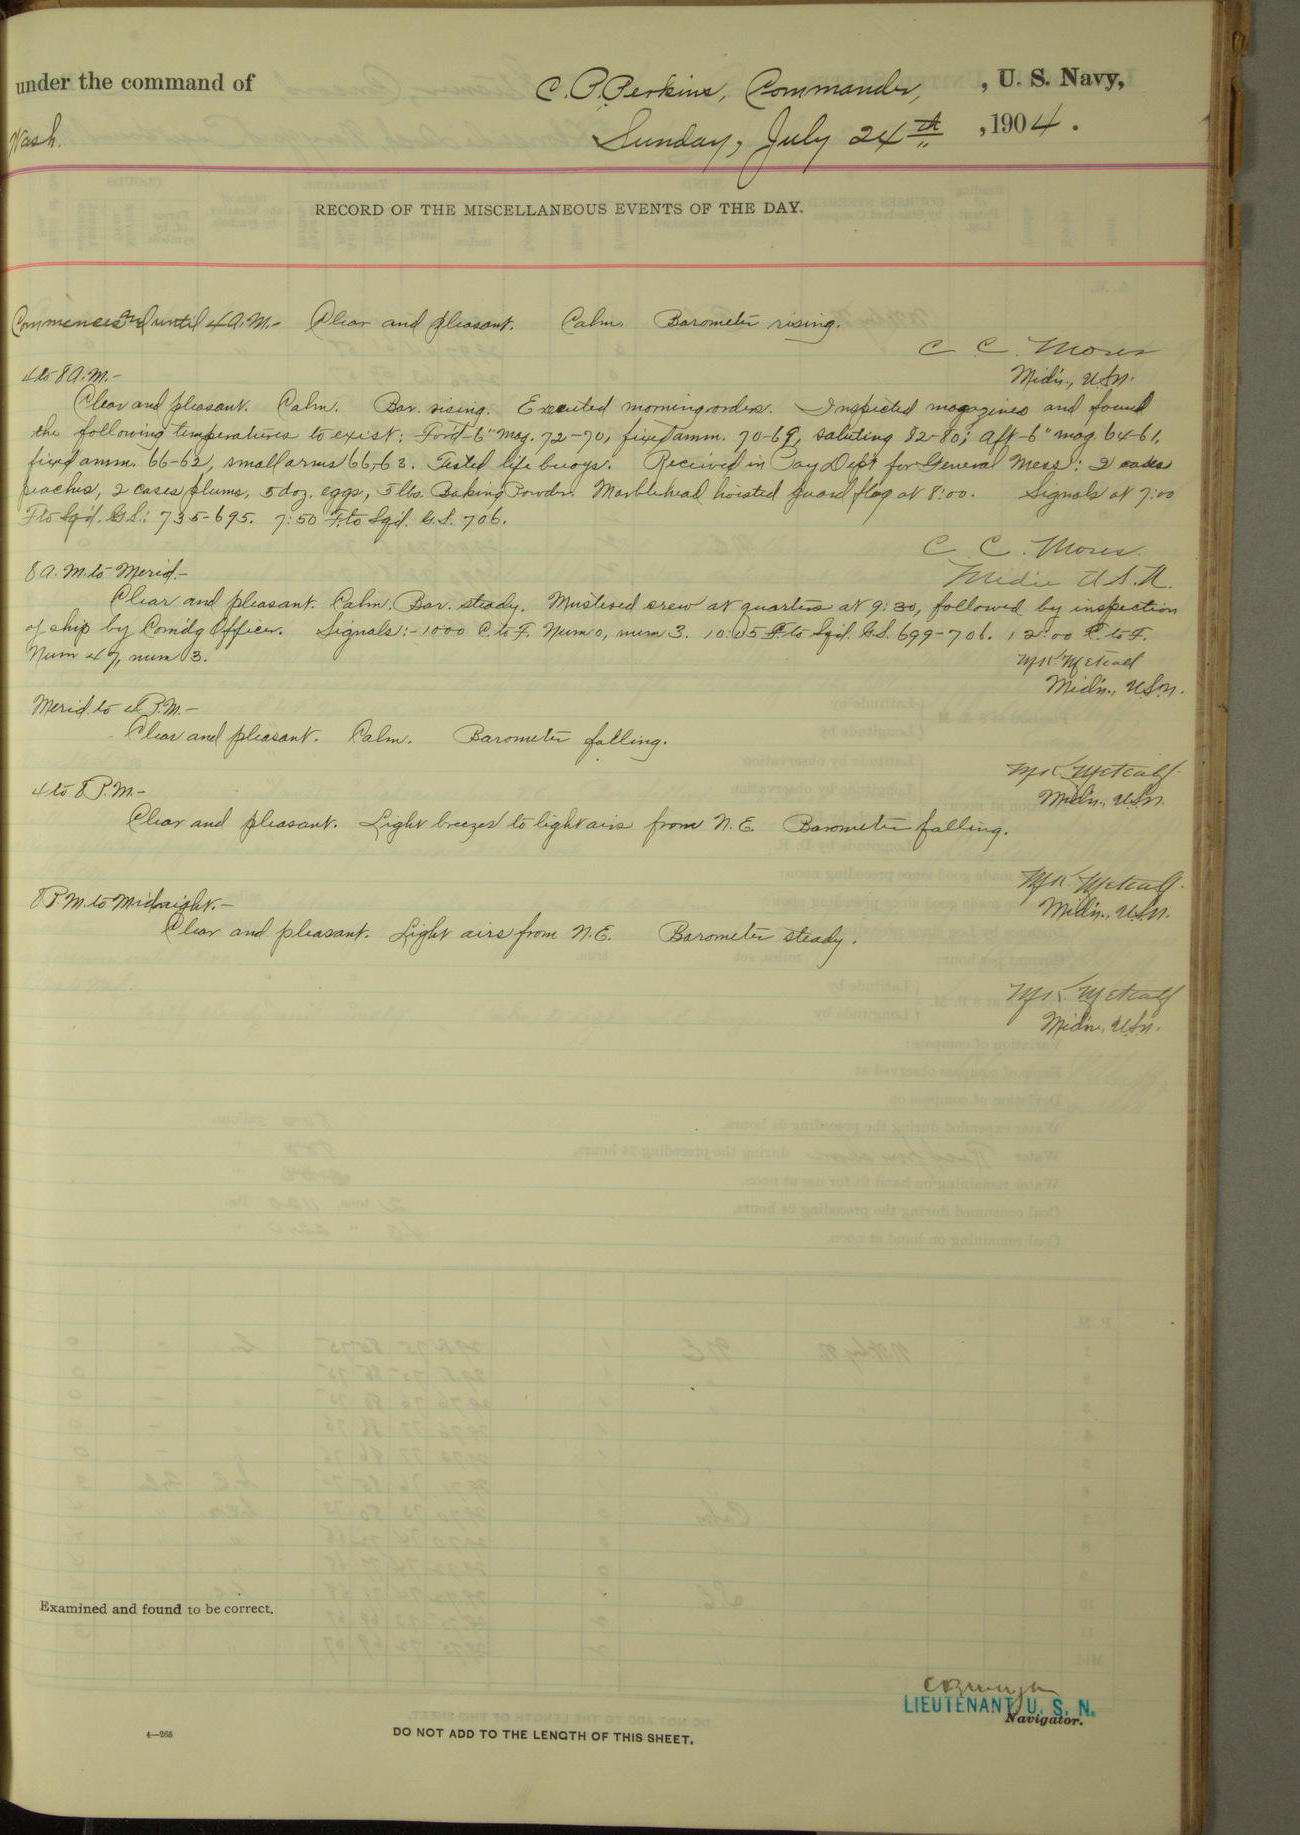 under the command of C. P. Perkins, Commander, , U. S. Navy,
Wash. Sunday, July 24th , 1904.
RECORD OF THE MISCELLANEOUS EVENTS OF THE DAY.
Commences and until 4 A.M.- Clear and pleasant. Calm. Barometer rising.
C. C. Moses
Mid'n., U.S.N.
4 to 8 A.M.-
Clear and pleasant. Calm. Bar. rising. Executed morning orders. Inspected magazines and found
the following temperatures to exist: For'd-6" mag. 72-70, fixed amm. 70-69, saluting 82-80; aft-6" mag. 64-61,
fixed amm. 66-62, small arms 66-63. Tested life buoys. Received in Pay Dep't for General Mess: 2 cases
peaches, 2 cases plums, 5 doz. eggs, 5 lbs. Baking Powder. Marblehead hoisted guard flag at 8:00. Signals at 7:00
F. to Sqd. G.S.: 735-695. 7:50 F. to Sqd. G.S. 706.
C. C. Moses.
Midn U.S.N.
8 A.M. to Merid.-
Clear and pleasant. Calm. Bar. steady. Mustered crew at quarters at 9:30, followed by inspection
of ship by Com'dg Officer. Signals:- 1000 C. to F. Num 0, num 3. 10:05 F. to Sqd. G.S. 699-706. 12:00 C. to F.
Num 47, num 3.
MK Metcalf
Mid'n., U.S.N.
Merid. to 4 P.M.-
Clear and pleasant. Calm. Barometer falling.
MK Metcalf.
Mid'n., U.S.N.
4 to 8 P.M.-
Clear and pleasant. Light breezes to light airs from N.E. Barometer falling.
MK Metcalf.
Mid'n., U.S.N.
8 P.M. to Midnight.-
Clear and pleasant. Light airs from N.E. Barometer steady.
MK Metcalf
Mid'n., U.S.N.
Examined and found to be correct.
LIEUTENANT, U. S. N.
Navigator.
4—265
DO NOT ADD TO THE LENGTH OF THIS SHEET.